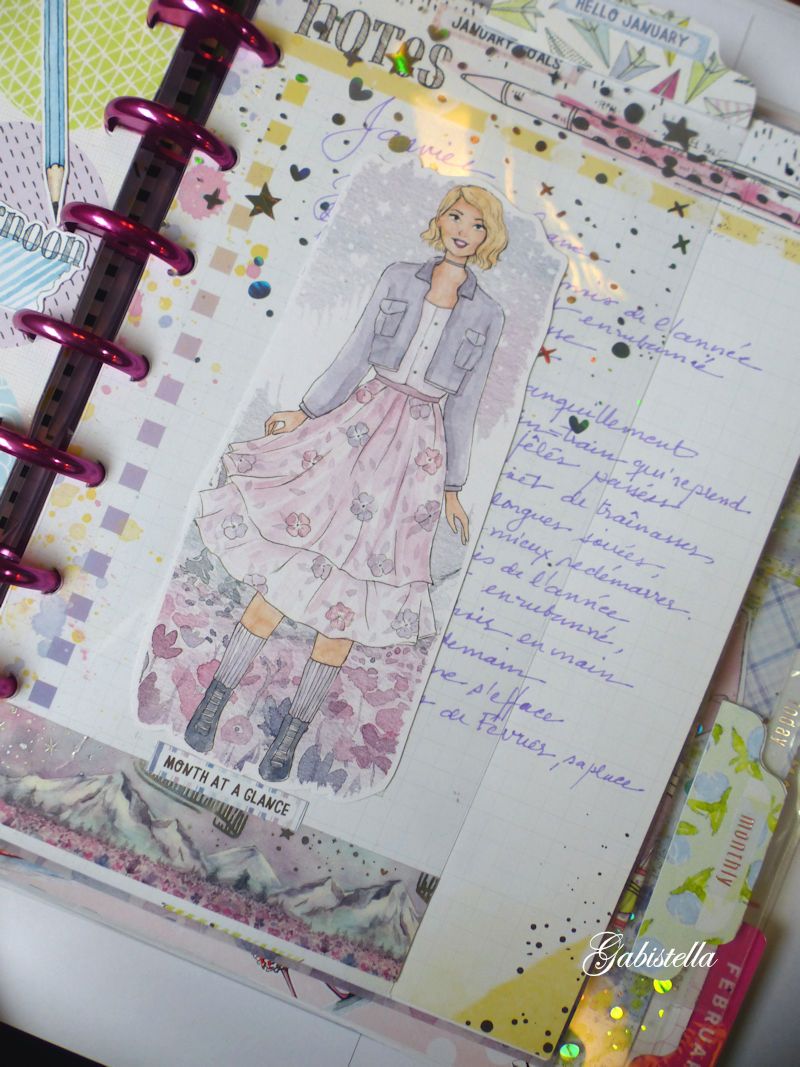 HELLO JANUARY
JANUARY GOALS
NOTES
Janvier
noon
de l'année
enrubannée
tranquillement
train-train qu'reprend
fêtes passées
de traînasses,
longues soirées
mieux redémarrer.
de l'année
enrubanné,
en main
demain
s'efface
de Février, sa place
MONTH AT A GLANCE
today
monthly
FEBRUAR
Gabistella